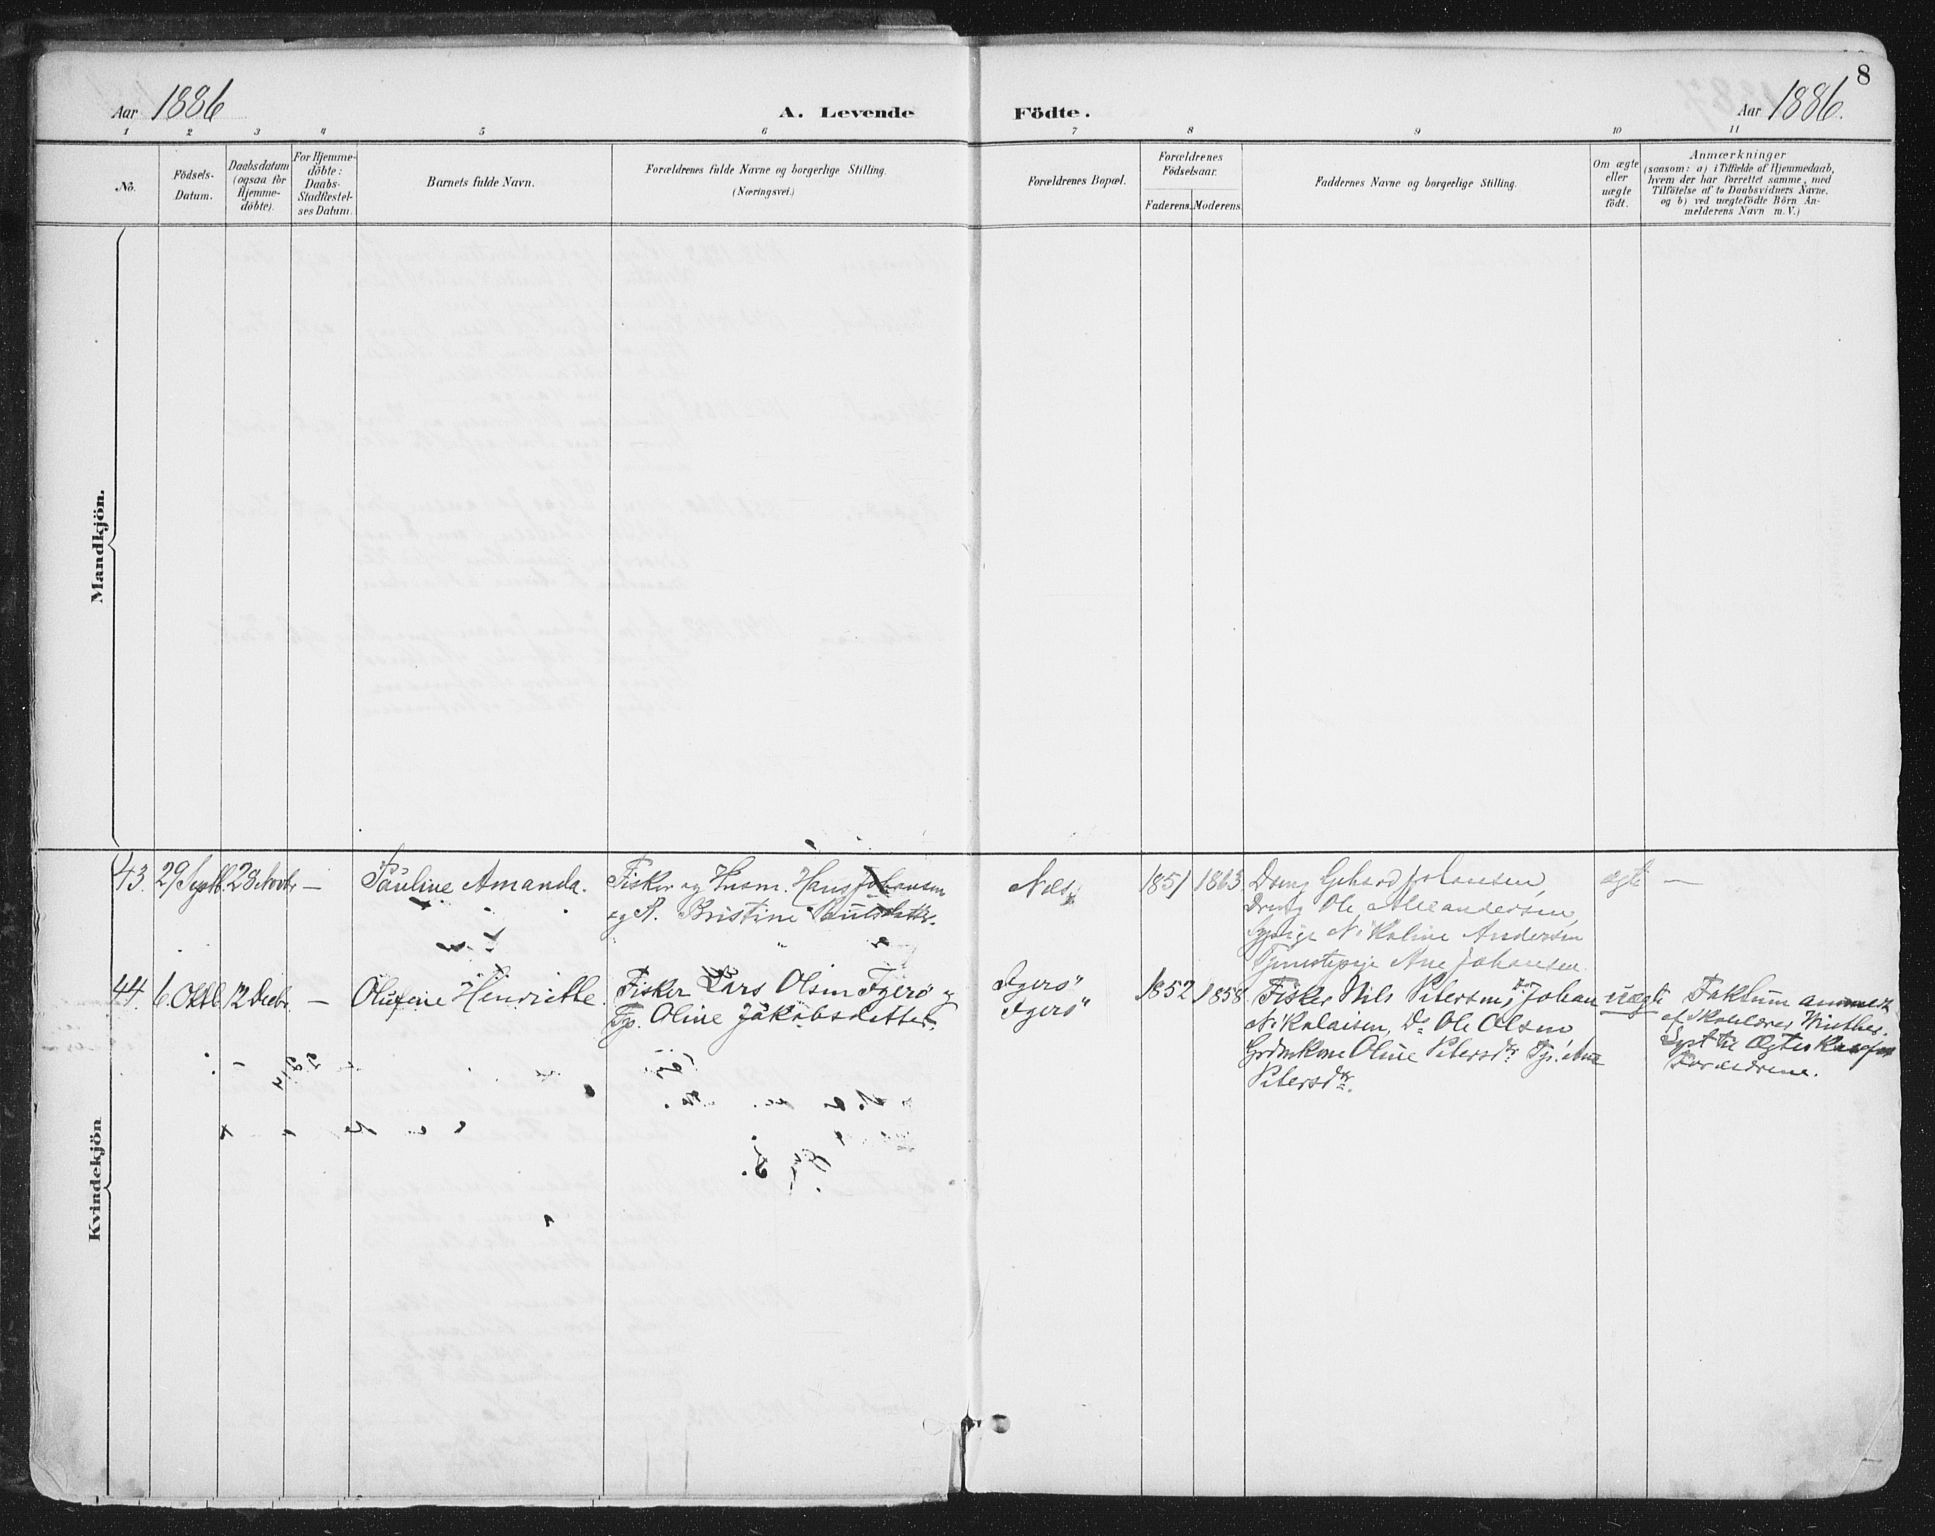 8
Aar 1886
A. Levende Födte.
Aar 1886.
1 2 3 4 5 6 7 8 9 10 11
No.
Födsels-
Datum.
Daabsdatum
(ogsaa for
Hjemme-
döbte).
For Hjemme-
döbte:
Daabs-
Stadfæstel-
ses Datum.
Barnets fulde Navn.
Forældrenes fulde Navne og borgerlige Stilling.
(Næringsvei.)
Forældrenes Bopæl.
Forældrenes
Födselsaar.
Faderens. Moderens.
Faddernes Navne og borgerlige Stilling.
Om ægte
eller
uægte
födt.
Anmærkninger
(saasom: a) i Tilfælde af Hjemmedaab,
hvem der har forrettet samme, med
Tilföielse af to Daabsvidners Navne,
og b) ved uægtefödte Börn An-
melderens Navn m. V.)
Mandkjön.
Kvindekjön
43.
29 Septb.
28 Novbr
—
Pauline Amanda.
Fisker og Husm. Hans Johansen
og A. Kristine Paulsdatter.
Næs
1851
1863
Dreng Gehard Johansen,
Dreng Ole Alexandersen,
Nikoline Andersen
Tjenestepige Ane Johansen
ægte
—
44.
6. Oktb
12 Decbr.
—
Olufine Henriette.
Fisker Lars Olsen Igerö og
Pg. Oline Jakobsdatter.
Igerö
Igerö
1852
1858
Fisker Nils Petersen, Do Johan
Nikolaisen, Do Ole Olsen
Grdmkone Oline Petersdr. Pg. Ane
Petersdr.
uægte
Faktum anmeldt
af Skolelærer Winther.
Lyst til Ægteskab for
Forældrene.